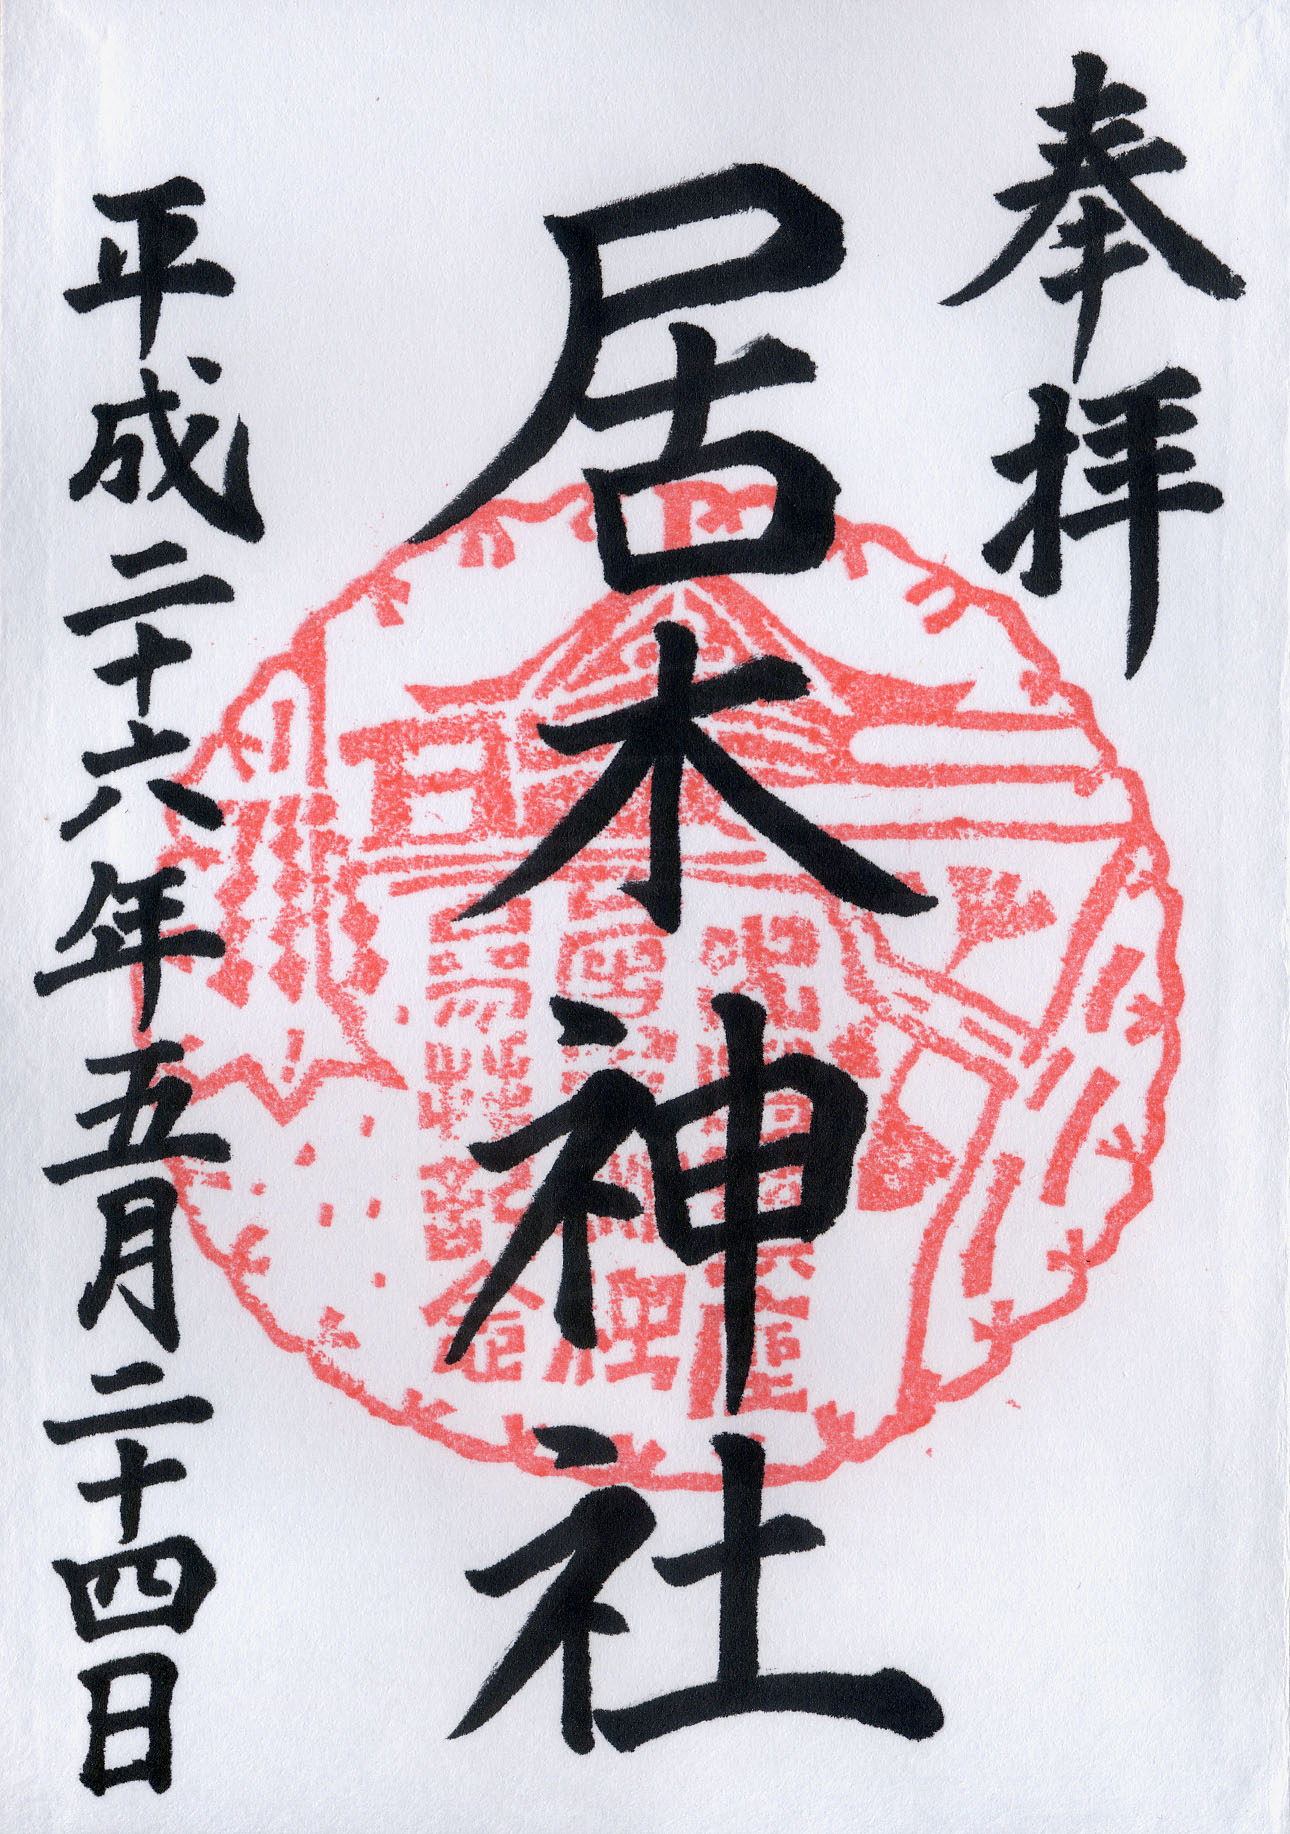 奉拝
居木神社
平成二十六年五月二十四日